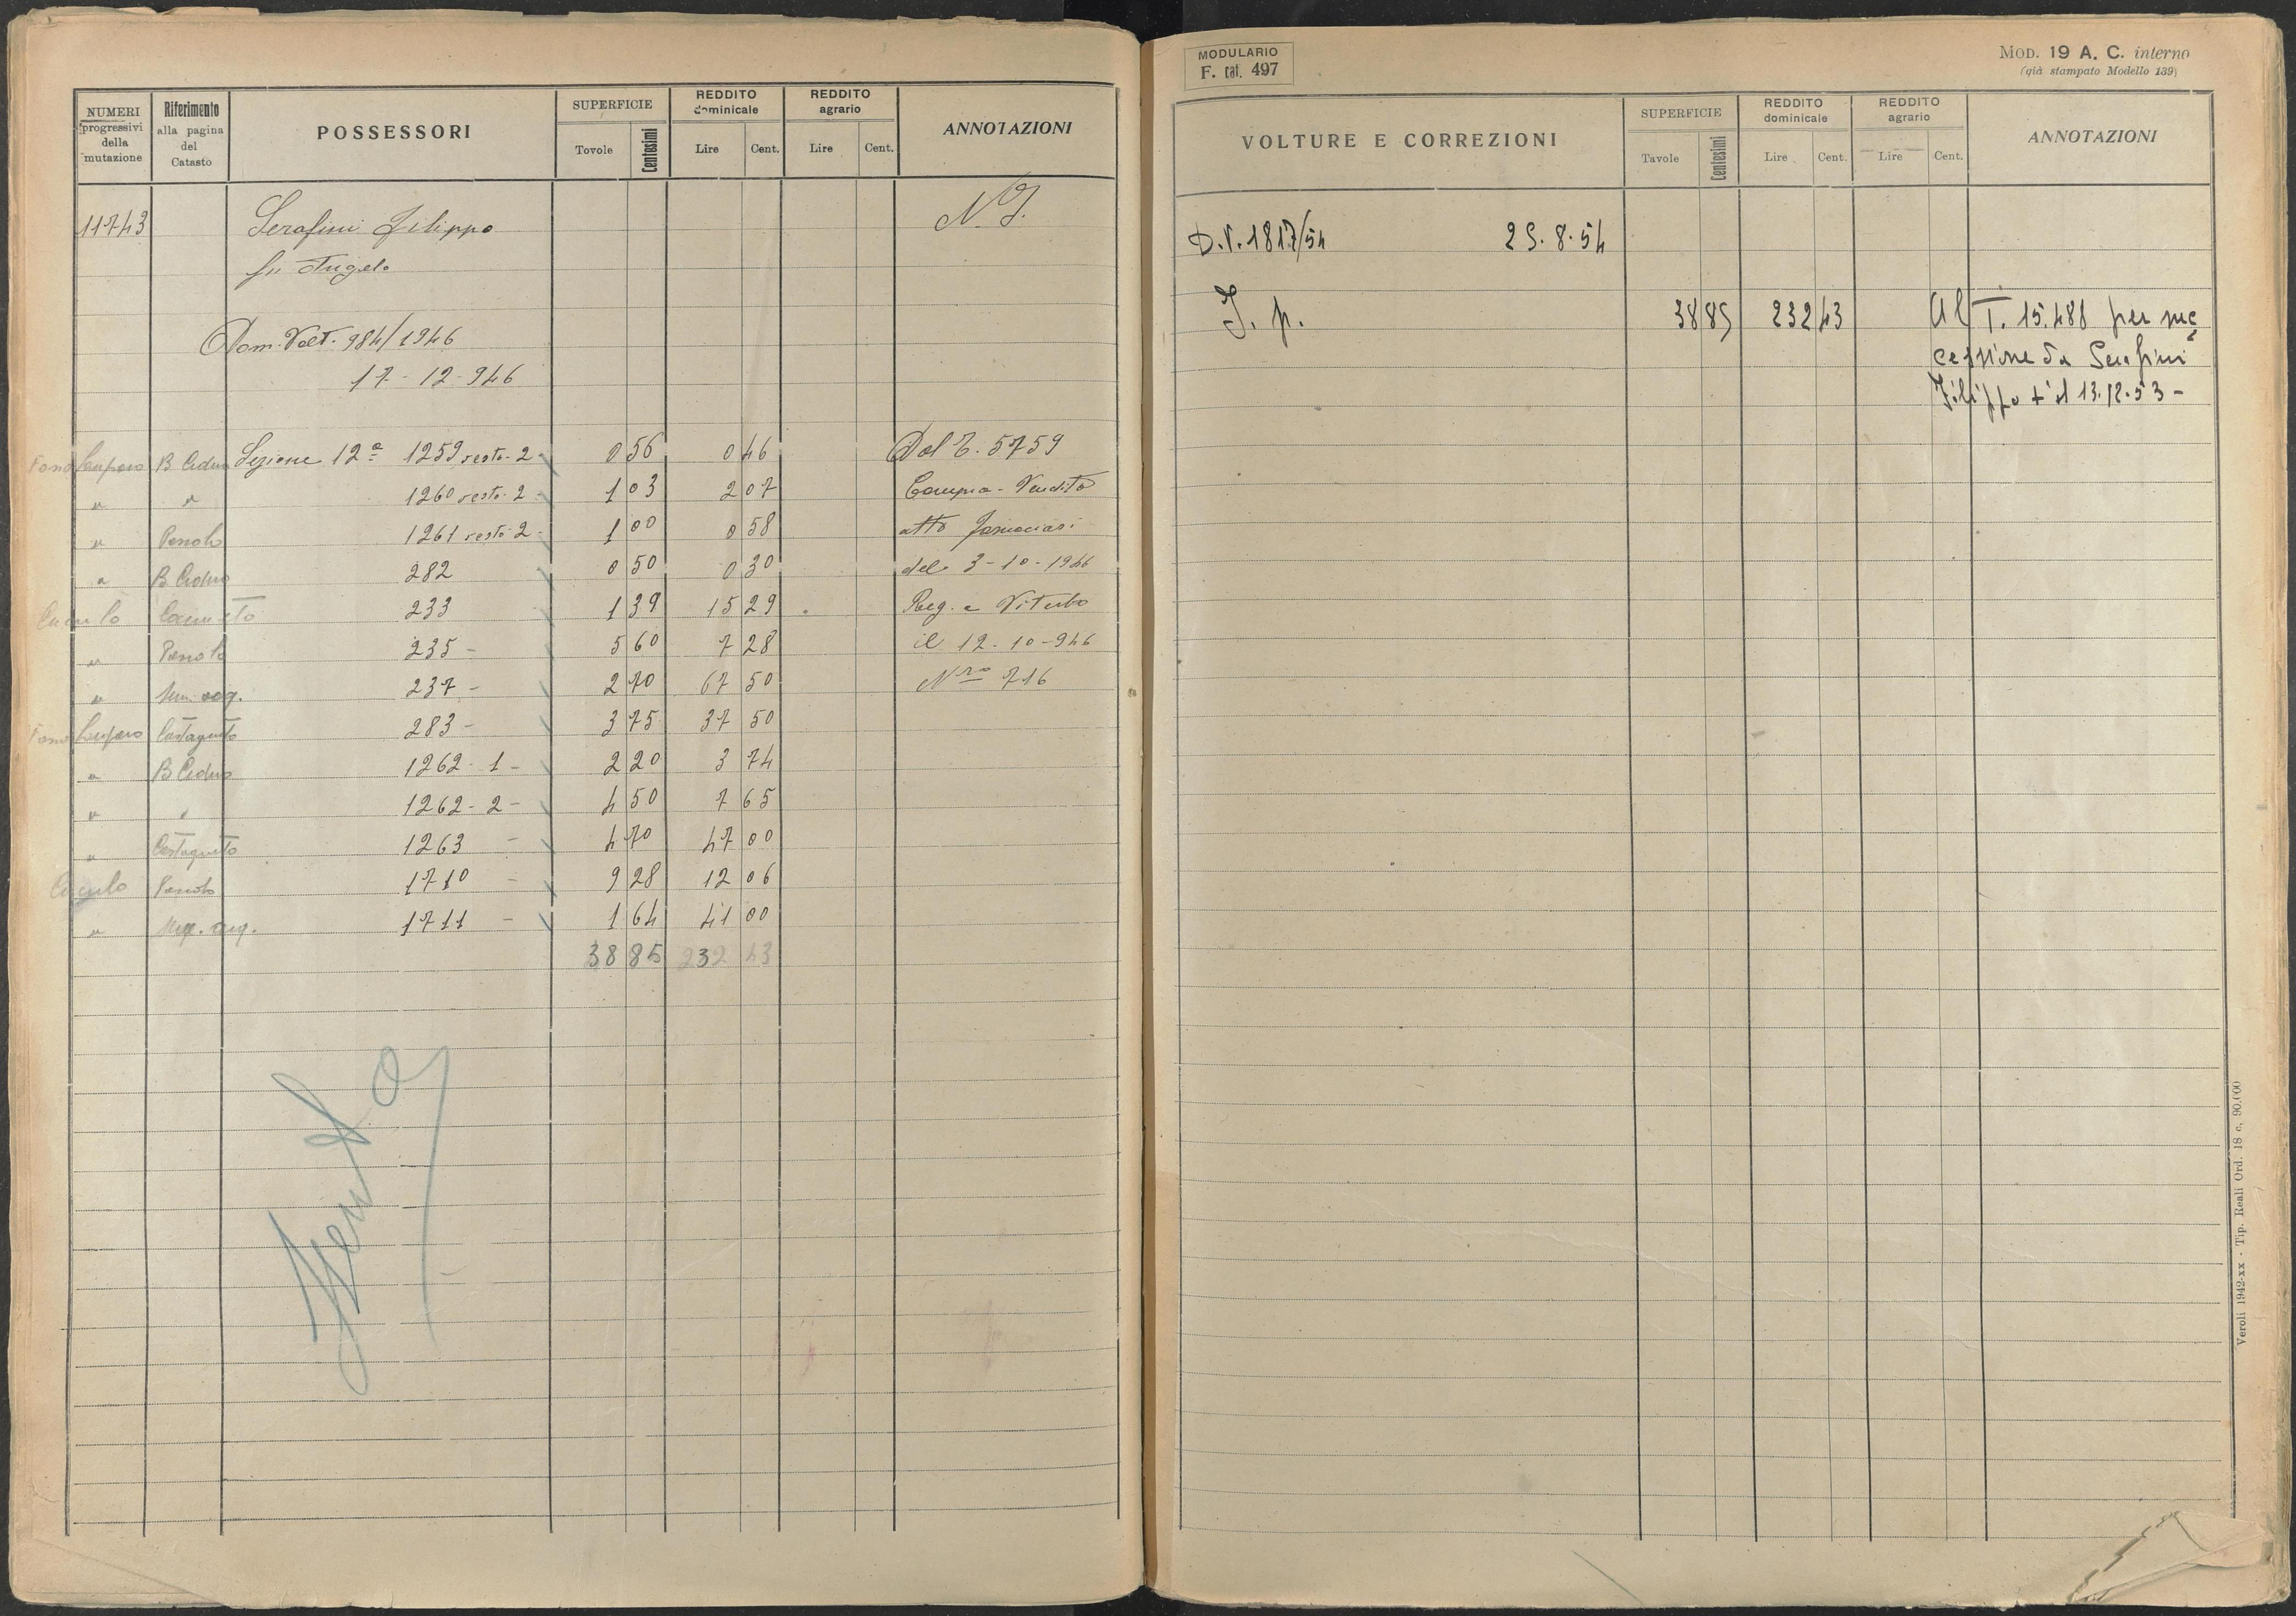 NUMERI progressivi della mutazione | Riferimento alla pagina del Catasto | POSSESSORI | SUPERFICIE Tovole Centesimi | REDDITO dominicale Lire Cent. | REDDITO agrario Lire Cent. | ANNOTAZIONI
11743 Serafini Filippo N. I.
fu Angelo
Dom. Volt. 984/1946
17-12-946
B Ceduo Sezione 12ª 1259 resto-2 0 56 0 46 Dal T. 5759
" " 1260 resto-2 1 03 2 07 Compra-Vendita
" 1261 resto-2 1 00 0 58 atto
" B. Ceduo 282 0 50 0 30 del 3-10-1946
233 1 39 15 29 Reg. a Viterbo
" 235 - 5 60 7 28 il 12-10-946
" 237 - 2 70 67 50 Nro 716
Castagneto 283 - 3 75 37 50
" B Ceduo 1262-1- 2 20 3 74
" " 1262-2- 4 50 7 65
" Castagneto 1263 - 4 70 47 00
1710 - 9 28 12 06
" 1711 - 1 64 41 00
38 85 232 43
MODULARIO
F. cat. 497
MOD. 19 A. C. interno
(già stampato Modello 139)
VOLTURE E CORREZIONI | SUPERFICIE Tavole Centesimi | REDDITO dominicale Lire Cent. | REDDITO agrario Lire Cent. | ANNOTAZIONI
D.V. 1817/54 25.8.54
I. p. 38 85 232 43 Al T. 15.488 per suc
cessione da Serafini
Filippo + il 13.12.53-
Veroli 1942-xx - Tip. Reali Ord. 18 c, 90.000